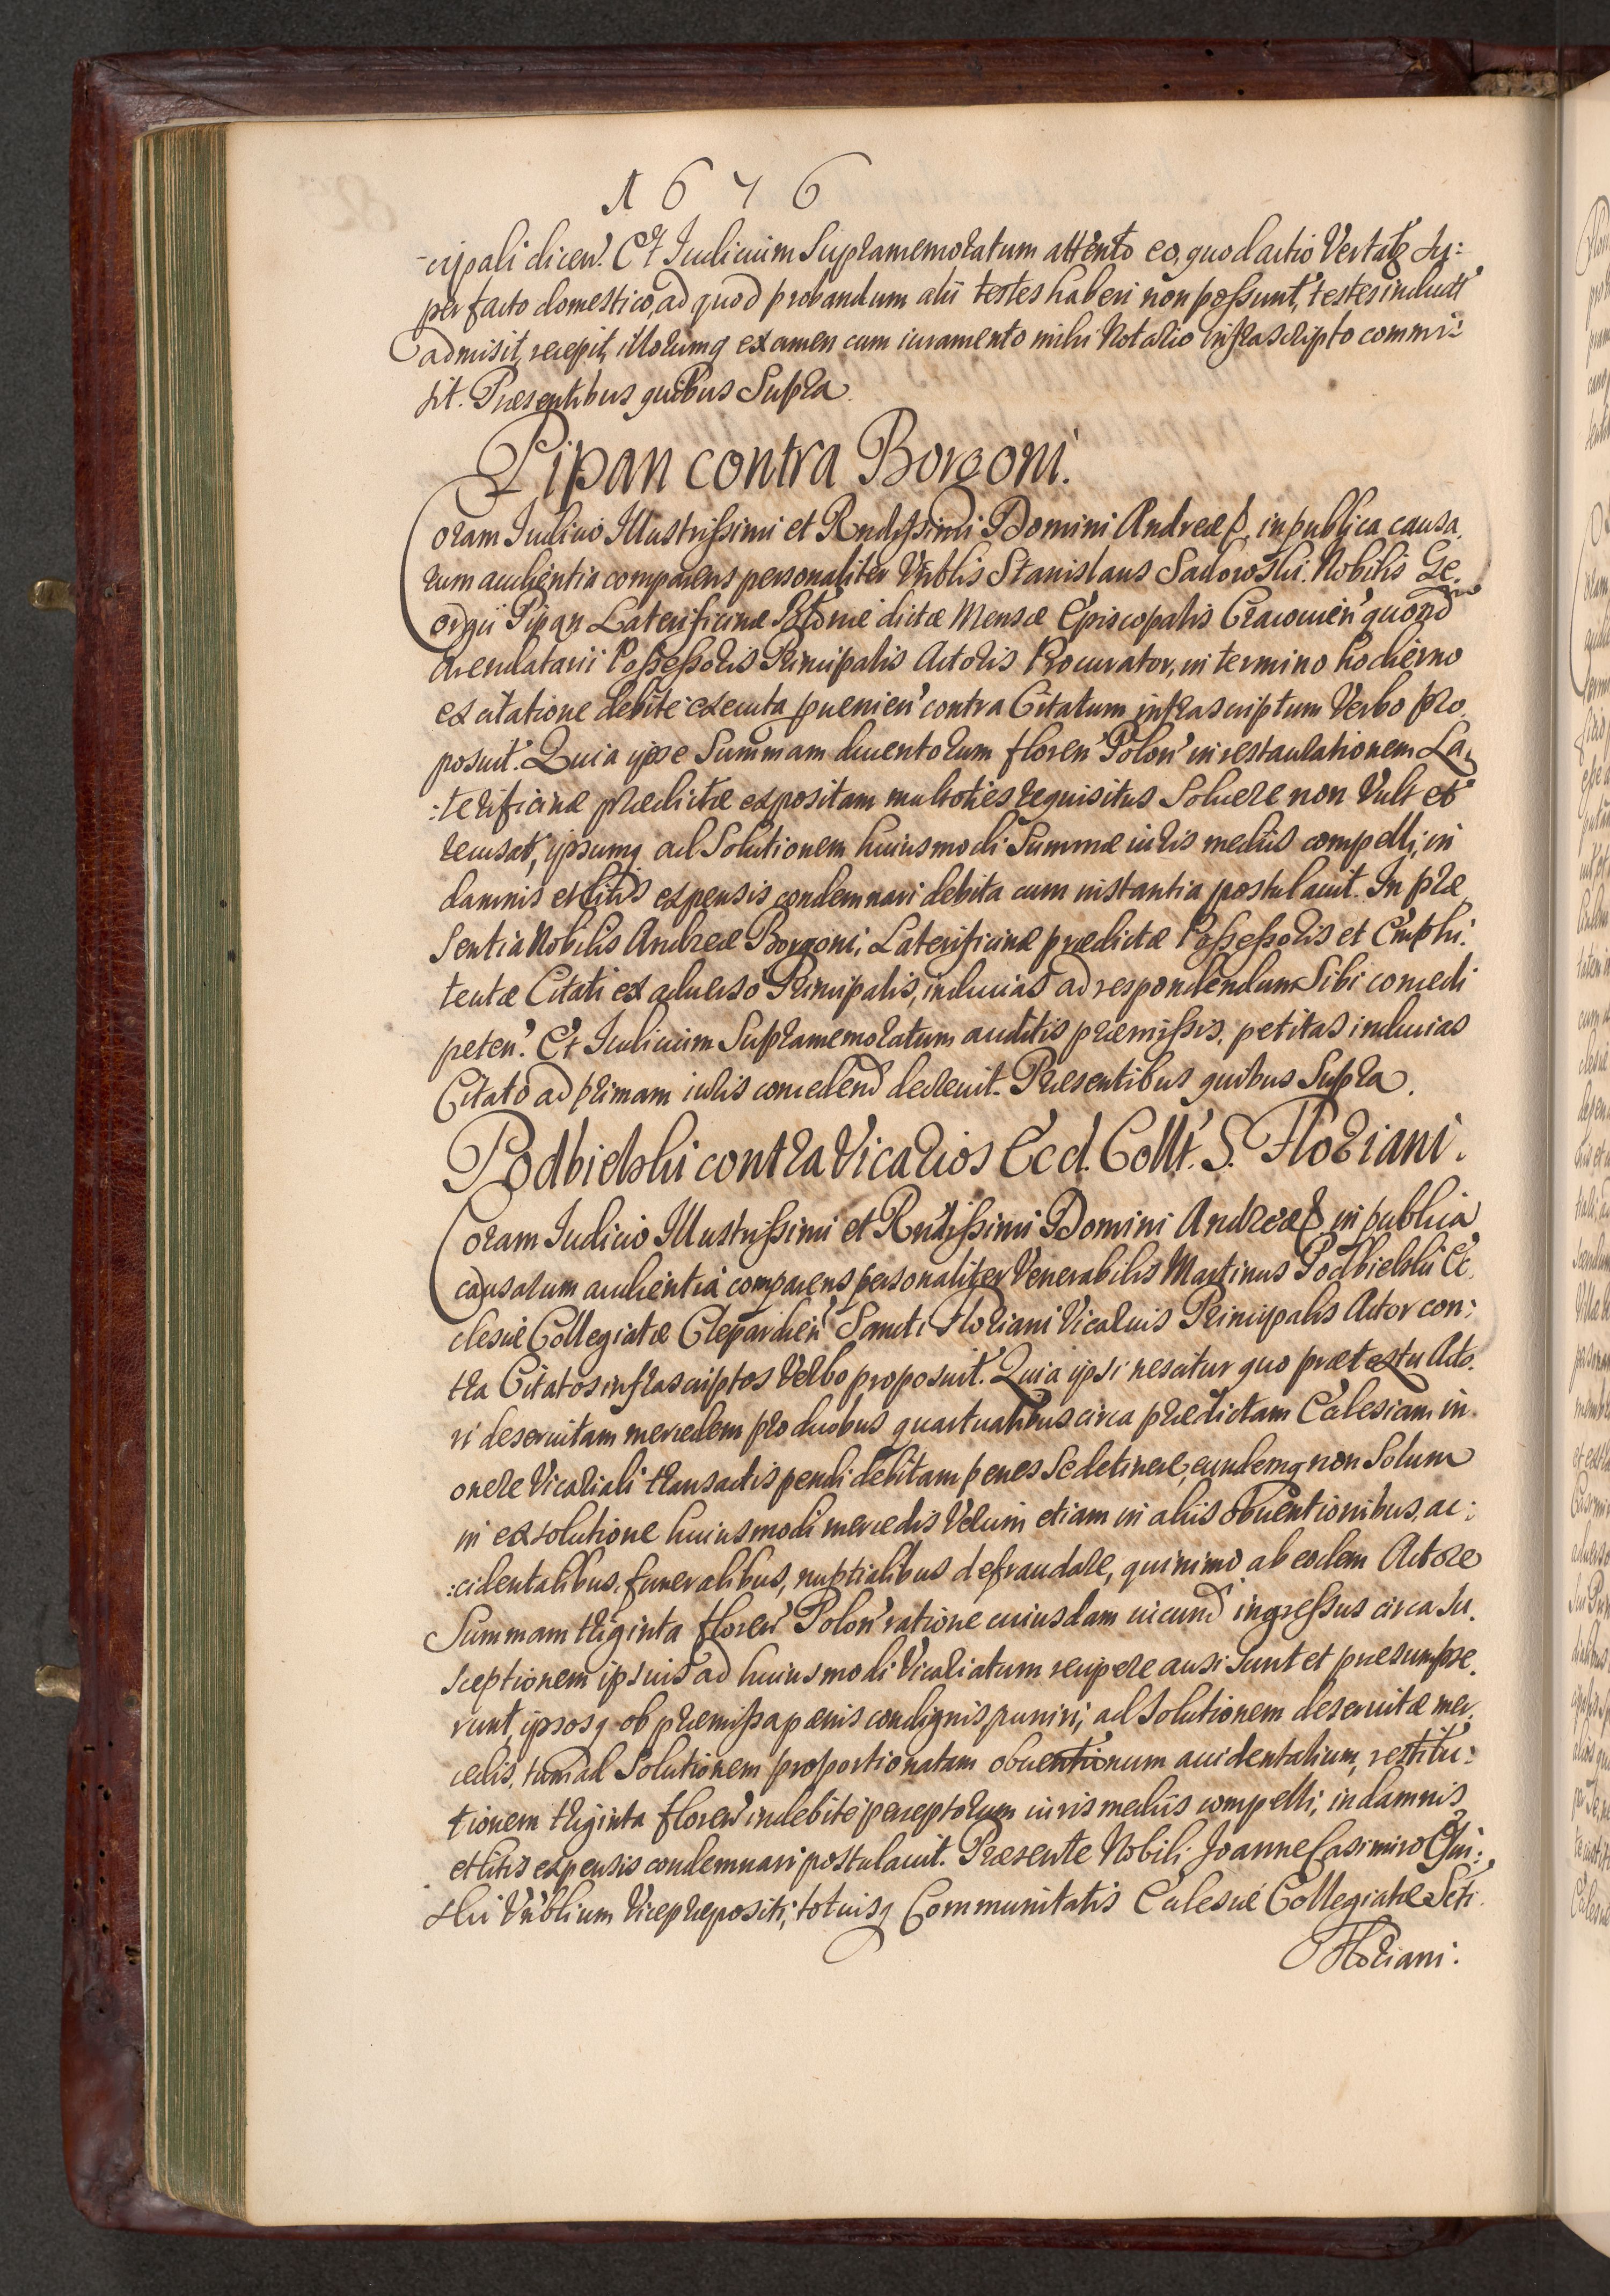 1676
cipali dicen̄. Et Iudicium Supramemoratum attento eo, quod actio Vertat̃ Su:
per facto domestico, ad quod probandum alii testes haberi non possunt, testes induct̃
admisit, recepit, illorumq̃ examen cum iuramento mihi Notario infrascripto commi:
sit. Præsentibus quibus Supra.
Pipan contra Borgoni.
Coram Iudicio Illustrissimi et Rñdissimi Domini Andreæ p. in publica causa.
rum audientia comparens personaliter Vñblis Stanislaus Sadowski. Nobilis Ge.
orgii Pipan Laterificinæ dictæ Mensæ Episcopalis Cracouien̄ quond̃
Arendatarii Possessoris Principalis Actoris Procurator, in termino hodierno
ex citatione debite executa puenien̄ contra Citatum infrascriptum Verbo pro.
posuit. Quia ipse Summam ducentorum floren̄ Polon̄ in restaurationem La,
:terificinæ prædictæ expositam multoties requisitus Soluere non Vult et
recusat, ipsumq̃ ad Solutionem huiusmodi Summæ iuris mediis compelli, in
damnis et litis expensis condemnari debita cum instantia postulauit. In præ
Sentia Nobilis Andreæ Borgoni, Laterificinæ prædictæ Possessoris et Emphi.
teutæ Citati ex aduerso Principalis, inducias ad respondendum Sibi concedi
peten̄. Et Iudicium Supramemoratum auditis præmissis, petitas inducias
Citato ad primam iuris concedend̃ decreuit. Præsentibus quibus Supra.
Podbielski contra Vicarios Eccl. Collt̃. S. Floriani.
Coram Iudicio Illustrissimi et Rñdissimi Domini Andreæ p in publica
causarum audientia comparens personaliter Venerabilis Martinus Podbielski Ec.
clesiæ Collegiatæ Clepardien̄ Sancti Floriani Vicarius Principalis Actor con:
tra Citatos infrascriptos Verbo proposuit. Quia ipsi nescitur quo prætextu Acto.
ri deseruitam mercedem pro duobus quartualibus circa prædictam Ecclesiam in
onere Vicariali transactis pendi debitam penes Se detinere, eundemq̃ non Solum
in exsolutione huiusmodi mercedis Verum etiam in aliis obuentionibus, ac:
:cidentalibus, funeralibus, nuptialibus defraudare, quinimo ab eodem Actore
Summam triginta floren̄ Polon̄ ratione cuiusdam iucund̃ ingressus circa Su.
sceptionem ipsius ad huiusmodi Vicariatum recipere ausi Sunt et præsumpse.
runt, ipsosq̃ ob præmissa pænis condignis puniri, ad Solutionem deseruitæ mer.
cedis, tum ad Solutionem proportionatam obuentionum accidentalium, restitu:
tionem triginta floren̄ indebite perceptorum iuris mediis compelli, in damnis
et litis expensis condemnari postulauit. Præsente Nobili Joanne Casimiro
Vñblium Vicepræpositi, totiusq̃ Communitatis Ecclesiæ Collegiatæ Scti
Floriani.